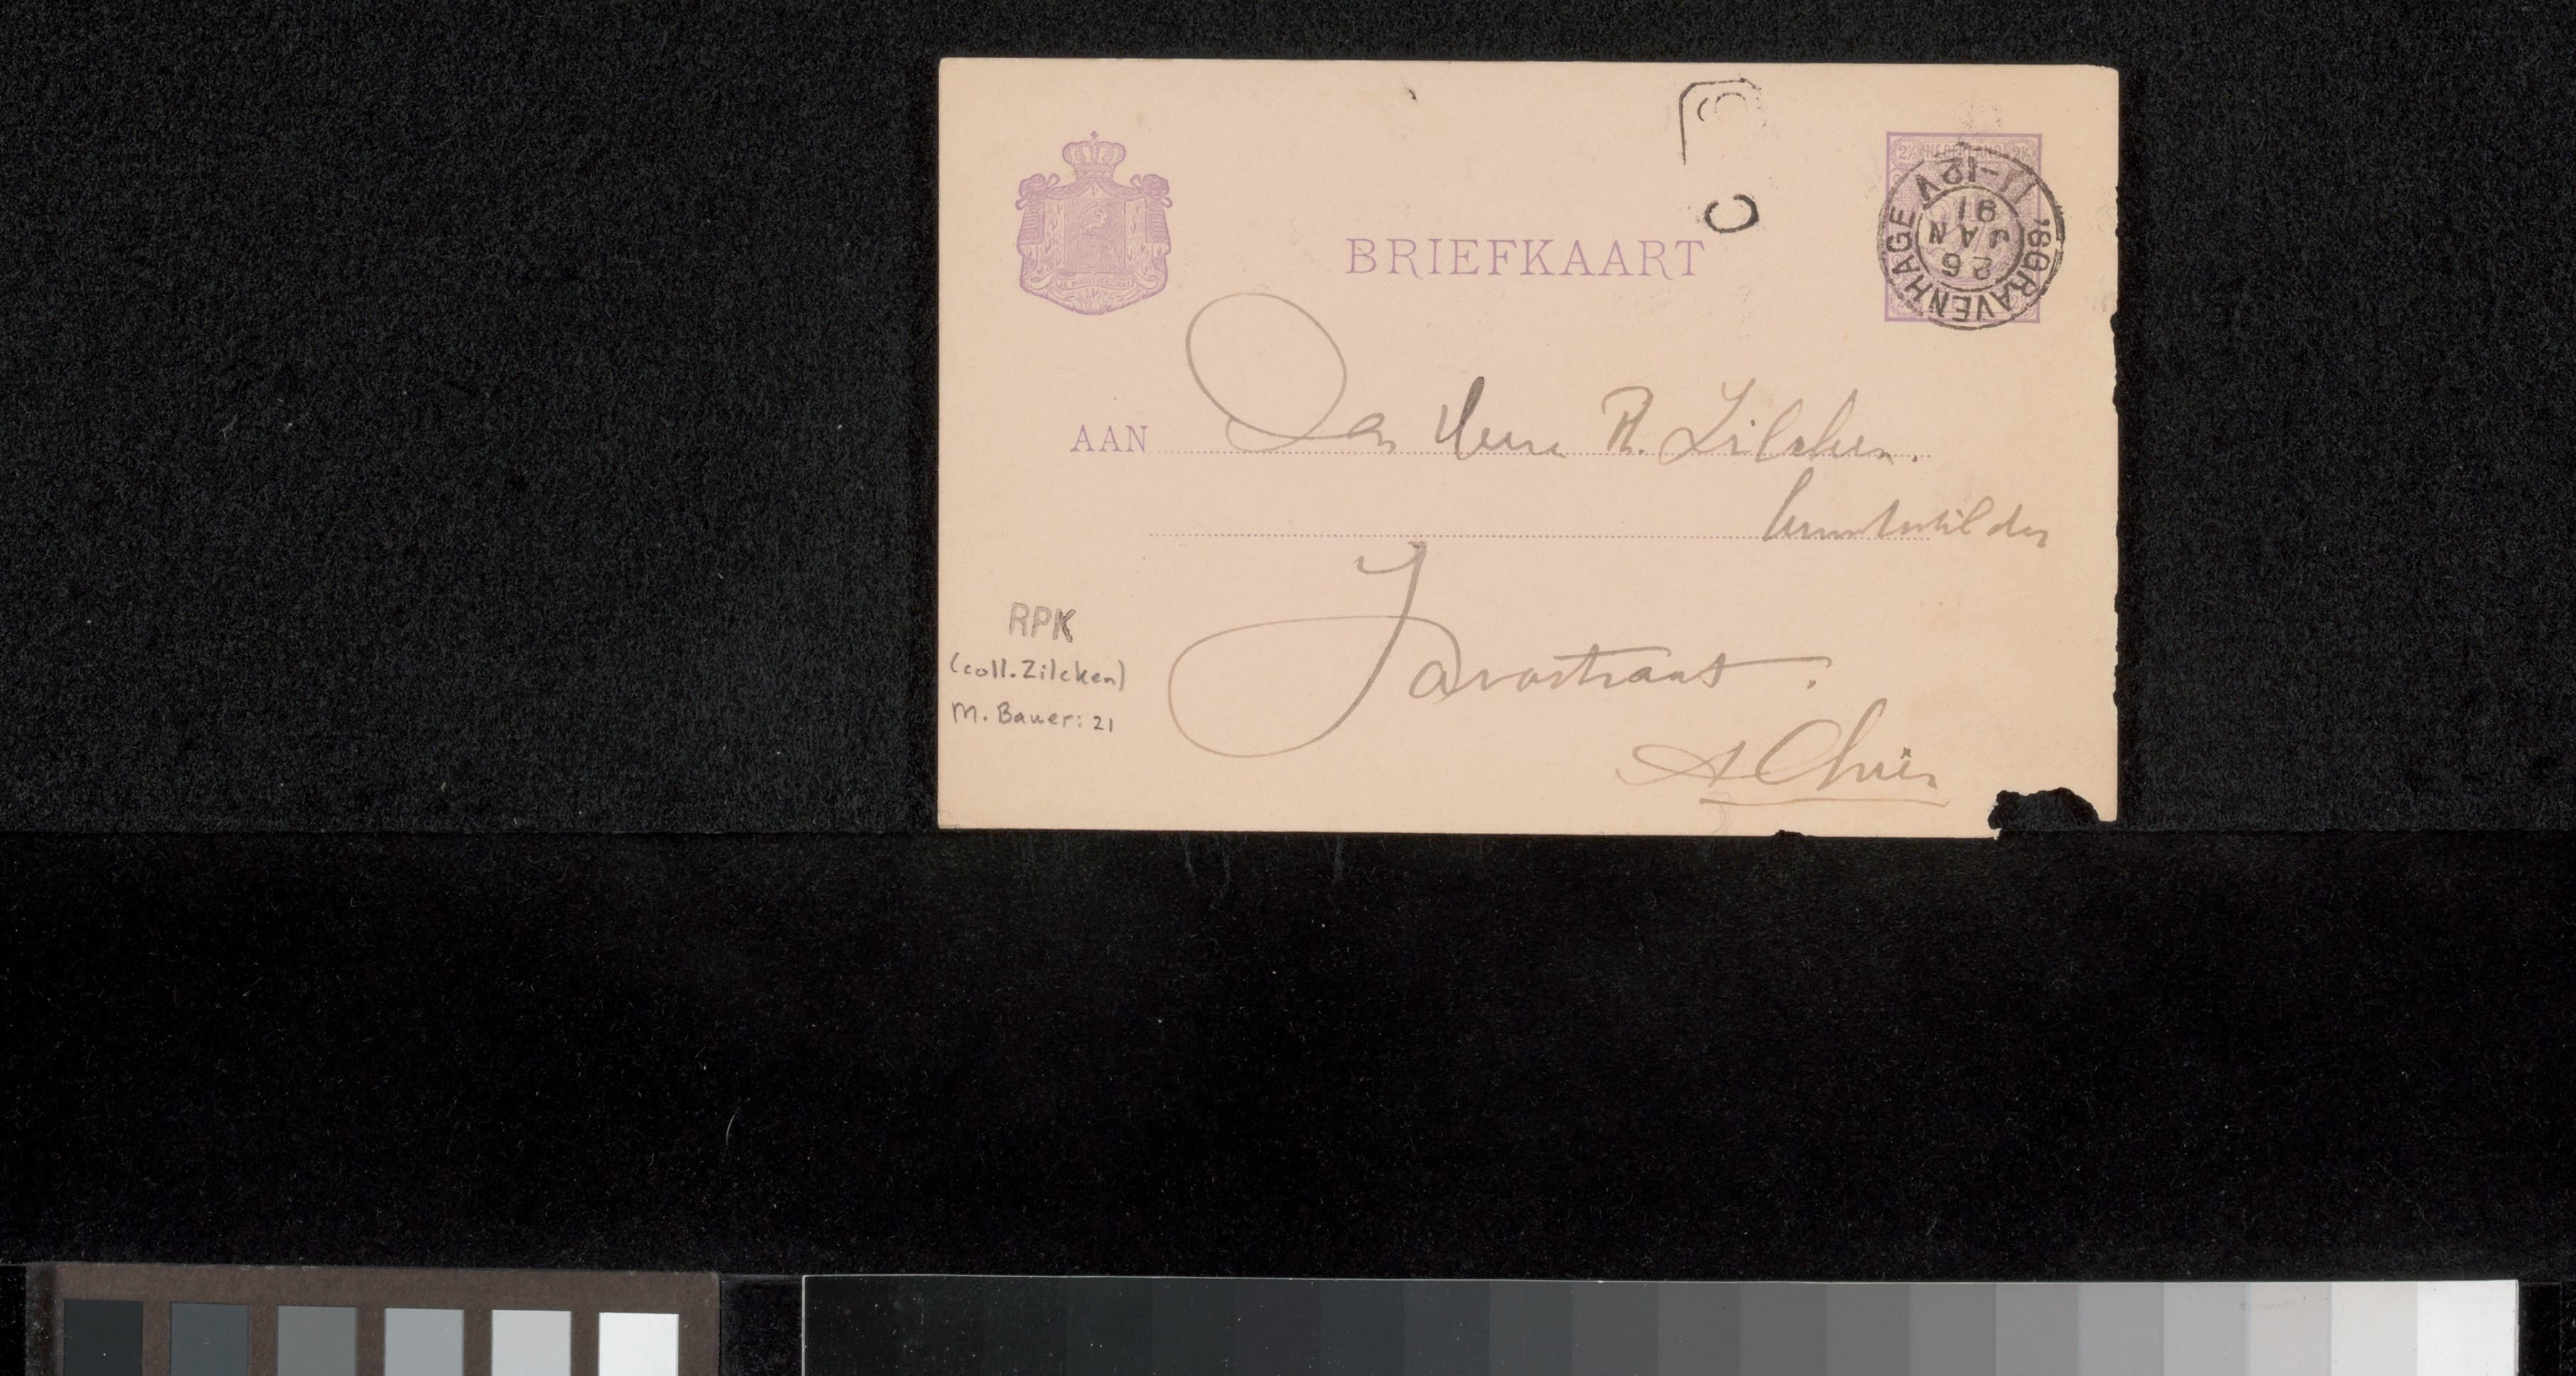 BRIEFKAART
2½ NEDERLAND 2½
'SGRAVENHAGE
11-12V
26
JAN
91
JE MAINTIENDRAI
C
AAN Den Heere Ph. Zilcken.
Kunstschilder
Javastraat.
Alhier
RPK
(coll. Zilcken)
M. Bauer: 21